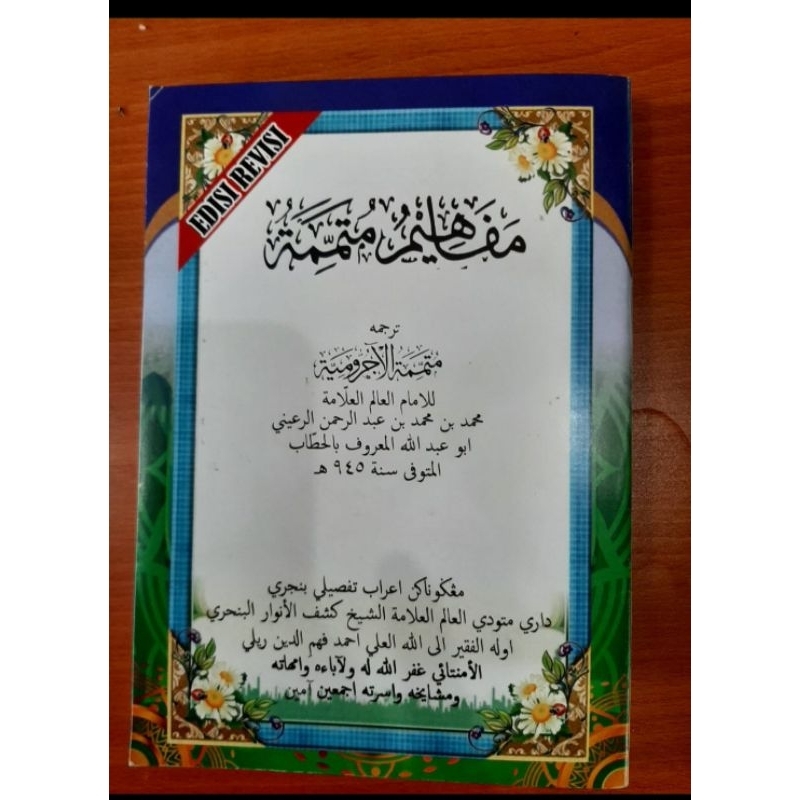 EDISI REVISI
مَفَاهِيْمُ مُتَمِّمَةُ
ترجمه
مُتَمِّمَةُ الْآجُرُومِيَّة
للامام العالم العلّامة
محمد بن محمد بن عبد الرحمن الرعيني
ابو عبد الله المعروف بالحطّاب
المتوفى سنة ٩٤٥ هـ
مڠݢوناكن اعراب تفصيلي بنجري
داري متودي العالم العلامة الشيخ كشف الأنوار البنجري
اوله الفقير الى الله العلي احمد فهم الدين ريلي
الأمنتائي غفر الله له ولآباءه وامهاته
ومشايخه واسرته اجمعين آمين